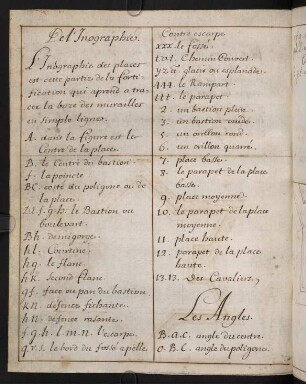 De l'Inographie.
L'Inographie des places
est cette partie de la forti
fication qui aprend a tra
cer la base des murailles
en simple ligne.
A. dans la figure est le
Centre de la place.
B. le Centre du bastion.
f. la pointe
BC. costé du poligone ou de
la place.
D. i. f. g. h. le Bastion ou
boulevart.
Bh. demigorge.
hl. Courtine.
hg. le flanc.
hk. second flanc.
gf. face ou pan du bastion.
kn. defence fichante.
hn. defence rasante.
f. g. h. l. m. n. l'escarpe.
q. r. s. le bord du fossé apellé
Contrescarpe
xxx. le fossé.
tvt. Chemin Couvert.
yzä. glacis ou esplanade.
444. le Rampart.
ttt. le parapet.
2. un bastion plein.
3. un bastion vuide.
5. un orillon rond.
6. un orillon quarré.
7. place basse.
8. le parapet de la place
basse.
9. place moyenne.
10. le parapet de la place
moyenne.
11. place haute.
12. parapet de la place
haute.
13.13. Des Cavaliers.
Les Angles.
B. A. C. angle du centre.
O. B. C. angle du poligone.